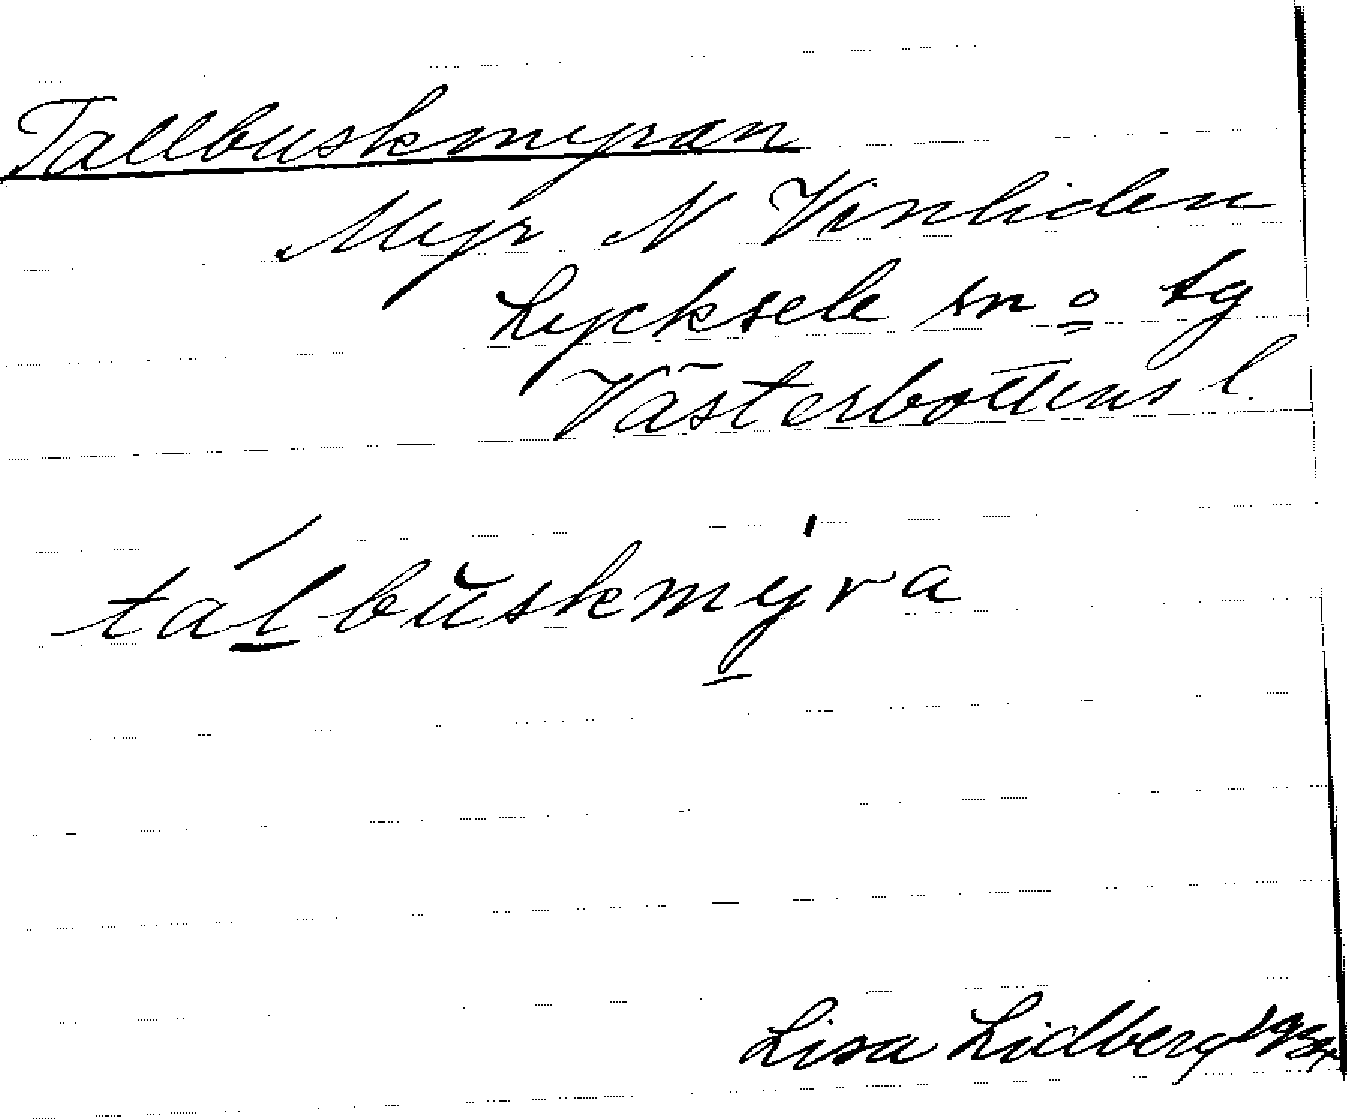 Tallbuskmyran
Myr N Vinliden
Lycksele sn o tg
Västerbottens l.
tálbuskmyra
Lisa Lidberg